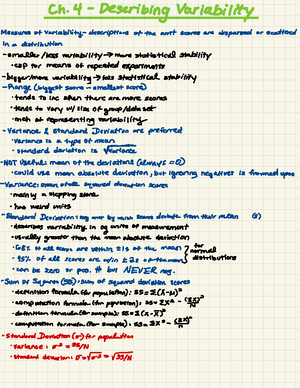 Ch. 4 - Describing Variability
Measures of Variability - descriptions of the amt scores are dispersed or scattered
in a distribution
- smaller/less variability → more statistical stability
• esp for means of repeated experiments
- bigger/more variability → less statistical stability
- Range (biggest score - smallest score)
• tends to inc when there are more scores
• tends to vary w/ size of group/dataset
• meh at representing variability
- Variance & Standard Deviation are preferred
• Variance is a type of mean
• standard deviation is √variance
- NOT useful: mean of the deviations (always = 0)
• could use mean absolute deviation, but ignoring negatives is frowned upon
- Variance: mean of all squared deviation scores
• mainly a stepping stone
• has weird units
- Standard Deviation: avg amt by which scores deviate from their mean (s)
• describes variability in og units of measurement
• usually greater than the mean absolute deviation
• 68% of all scores are within ±1s of the mean
• 95% of all scores are w/in ±2s of the mean
for normal distributions
• can be zero or pos. # but NEVER neg.
- Sum of Squares (SS): sum of squared deviation scores
• definition formula (for population): SS = Σ(X-μ)²
• computation formula (for population): SS = ΣX² - (ΣX)²/N
• definition formula (for sample): SS = Σ(X-X̄)²
• computation formula (for sample): SS = ΣX² - (ΣX)²/n
- Standard Deviation (σ) for population
• variance: σ² = SS/N
• standard deviation: σ = √σ² = √SS/N